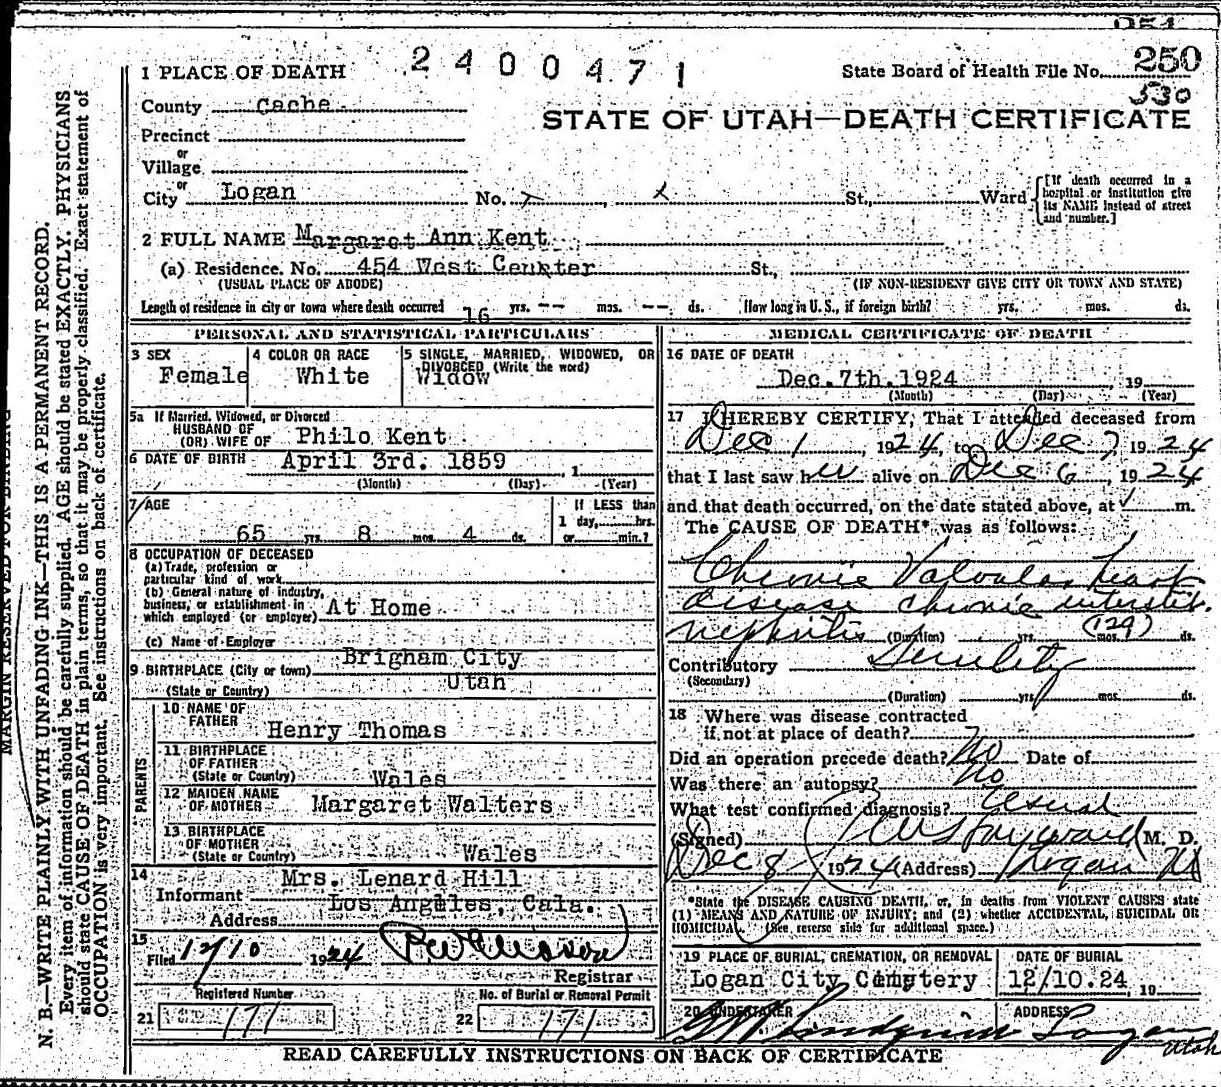 2400471
State Board of Health File No. 250
530
1 PLACE OF DEATH
County Cache
STATE OF UTAH—DEATH CERTIFICATE
Precinct
or
Village
or
City Logan No. x, x St., Ward [If death occurred in a hospital or institution give its NAME instead of street and number.]
2 FULL NAME Margaret Ann Kent
(a) Residence. No. 454 West Ceunter St.,
(USUAL PLACE OF ABODE) (IF NON-RESIDENT GIVE CITY OR TOWN AND STATE)
Length of residence in city or town where death occurred 16 yrs. -- mos. -- ds. How long in U. S., if foreign birth? yrs. mos. ds.
PERSONAL AND STATISTICAL PARTICULARS
3 SEX
Female
4 COLOR OR RACE
White
5 SINGLE, MARRIED, WIDOWED, OR
DIVORCED (Write the word)
Widow
5a If Married, Widowed, or Divorced
HUSBAND OF
(OR) WIFE OF Philo Kent
6 DATE OF BIRTH April 3rd. 1859, 1
(Month) (Day) (Year)
7 AGE
65 yrs. 8 mos. 4 ds.
If LESS than
1 day, hrs.
or min.?
8 OCCUPATION OF DECEASED
(a) Trade, profession or
particular kind of work
(b) General nature of industry,
business, or establishment in
which employed (or employer) At Home
(c) Name of Employer
9 BIRTHPLACE (City or town) Brigham City
(State or Country) Utah
PARENTS
10 NAME OF
FATHER Henry Thomas
11 BIRTHPLACE
OF FATHER
(State or Country) Wales
12 MAIDEN NAME
OF MOTHER Margaret Walters
13 BIRTHPLACE
OF MOTHER
(State or Country) Wales
14
Informant Mrs. Lenard Hill
Address Los Angeles, Cala.
15
Filed 12/10 1924
Registrar
Registered Number
21 177
No. of Burial or Removal Permit
22 171
MEDICAL CERTIFICATE OF DEATH
16 DATE OF DEATH
Dec. 7th. 1924, 19
(Month) (Day) (Year)
17 I HEREBY CERTIFY, That I attended deceased from
Dec 1, 1924, to Dec 7, 1924
that I last saw her alive on Dec 6, 1924
and that death occurred, on the date stated above, at m.
The CAUSE OF DEATH* was as follows:
Chronic Valvular heart
disease chronic interstit.
nephritis (Duration) yrs. mos. ds.
(129)
Contributory Senility
(Secondary)
(Duration) yrs. mos. ds.
18 Where was disease contracted
if not at place of death?
Did an operation precede death? No Date of
Was there an autopsy? No
What test confirmed diagnosis? Usual
(Signed) Hayward M. D.
Dec 8 1924 (Address) Logan Ut
*State the DISEASE CAUSING DEATH, or, in deaths from VIOLENT CAUSES state
(1) MEANS AND NATURE OF INJURY; and (2) whether ACCIDENTAL, SUICIDAL OR
HOMICIDAL. (See reverse side for additional space.)
19 PLACE OF BURIAL, CREMATION, OR REMOVAL
Logan City Cemetery
DATE OF BURIAL
12/10.24, 19
20 UNDERTAKER
Lindquist
ADDRESS
Logan
Utah
READ CAREFULLY INSTRUCTIONS ON BACK OF CERTIFICATE
MARGIN RESERVED FOR BINDING
N. B.—WRITE PLAINLY WITH UNFADING INK—THIS IS A PERMANENT RECORD.
Every item of information should be carefully supplied. AGE should be stated EXACTLY. PHYSICIANS
should state CAUSE OF DEATH in plain terms, so that it may be properly classified. Exact statement of
OCCUPATION is very important. See instructions on back of certificate.